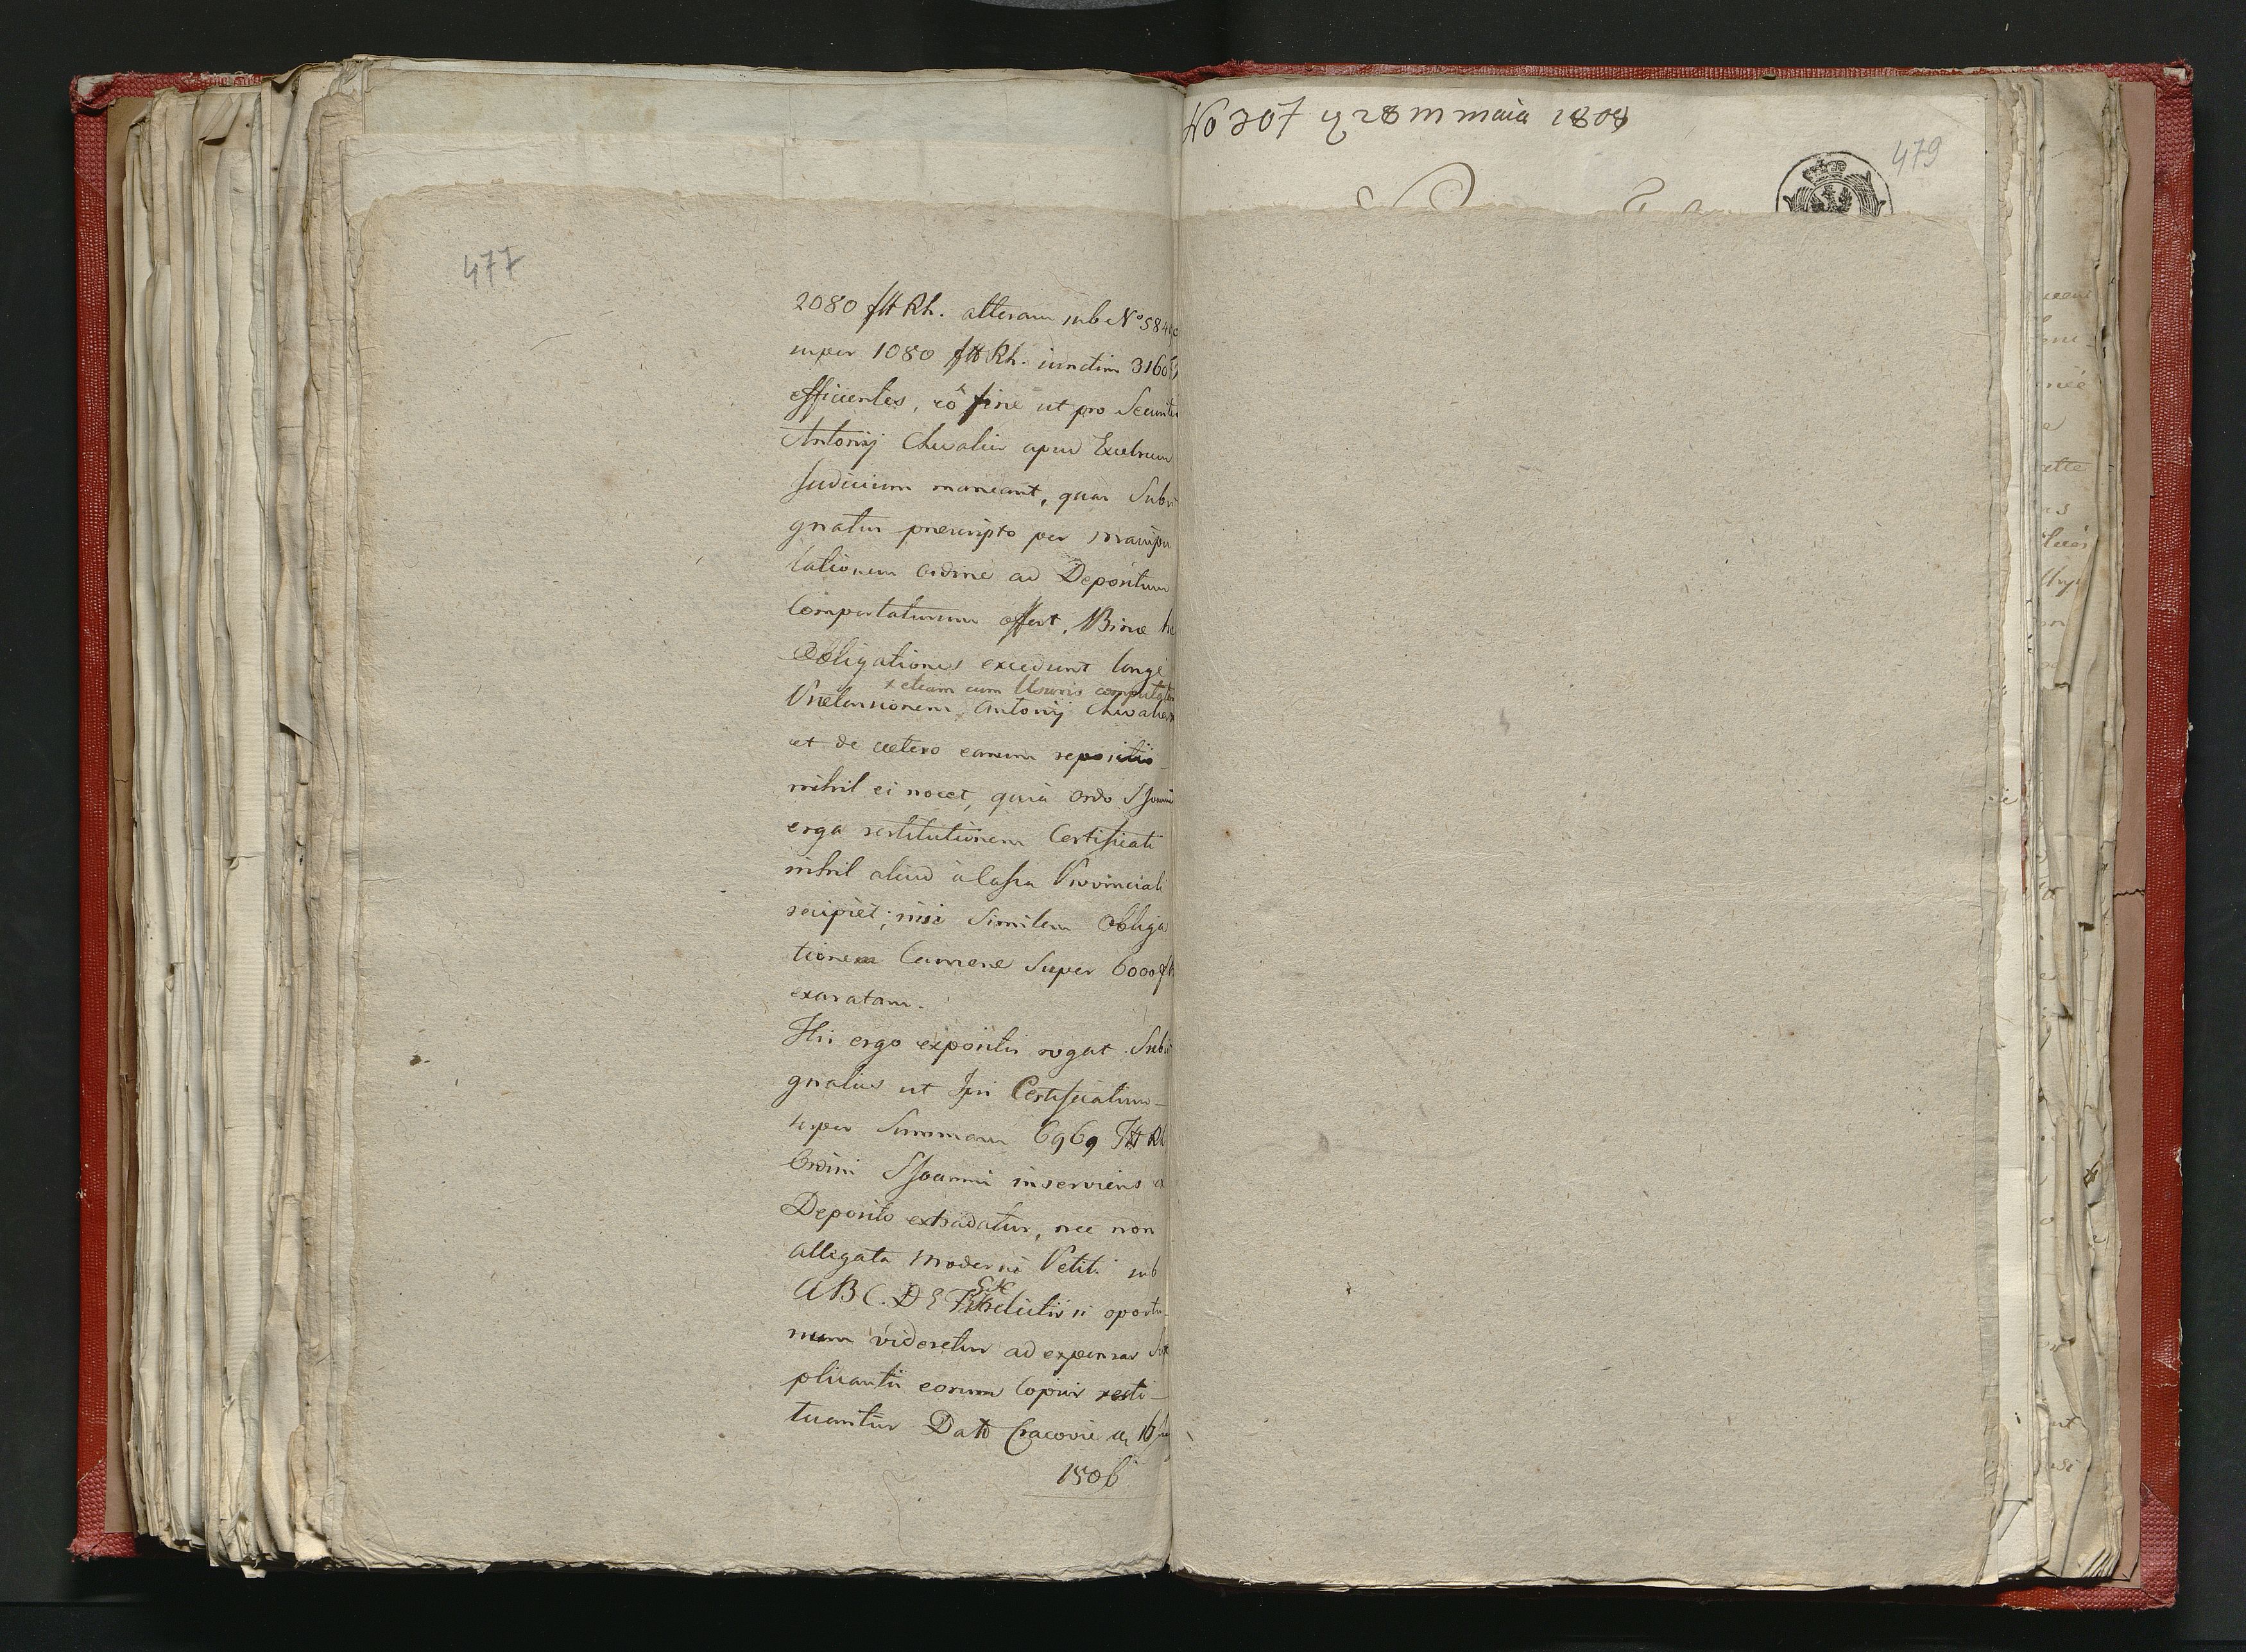 477
2080 fH Rh. alteram sub No 584
super 1080 fH Rh. iunctim 3160
efficientes, eô fine ut pro Securita
Antonij Chevalier apud Excelsum
Judicium maneant, quas Subsi
gnatus prescripto per manipu
lationem ordine ad Depositum
Comportaturum offert. Binæ hæ
Obligationes excedunt longe
x etiam cum Usuris computatam
Prætensionem x Antonij Chevalier
et de cætero earum repositio
nihil ei nocet, quia Ordo S Joannis
erga restitutionem Certificati
nihil aliud à Cassa Provinciali
recipiet; nisi Similem Obliga
tionem Cameræ Super 6000 f
exaratam.
His ergo expositis rogat Subsi
gnatus ut Ipsi Certificatum
super Summam 6969 fH Rh
Ordini S Joannis inserviens a
Deposito extradatur, nec non
Alligata moderni Petiti sub
A B C. D E relictis si oportu-
num videretur ad expensas Sup
plicantis eorum Copiis resti-
tuantur Datt Cracoviæ d 16
1806
No 307 d 28 m maia 1808
479